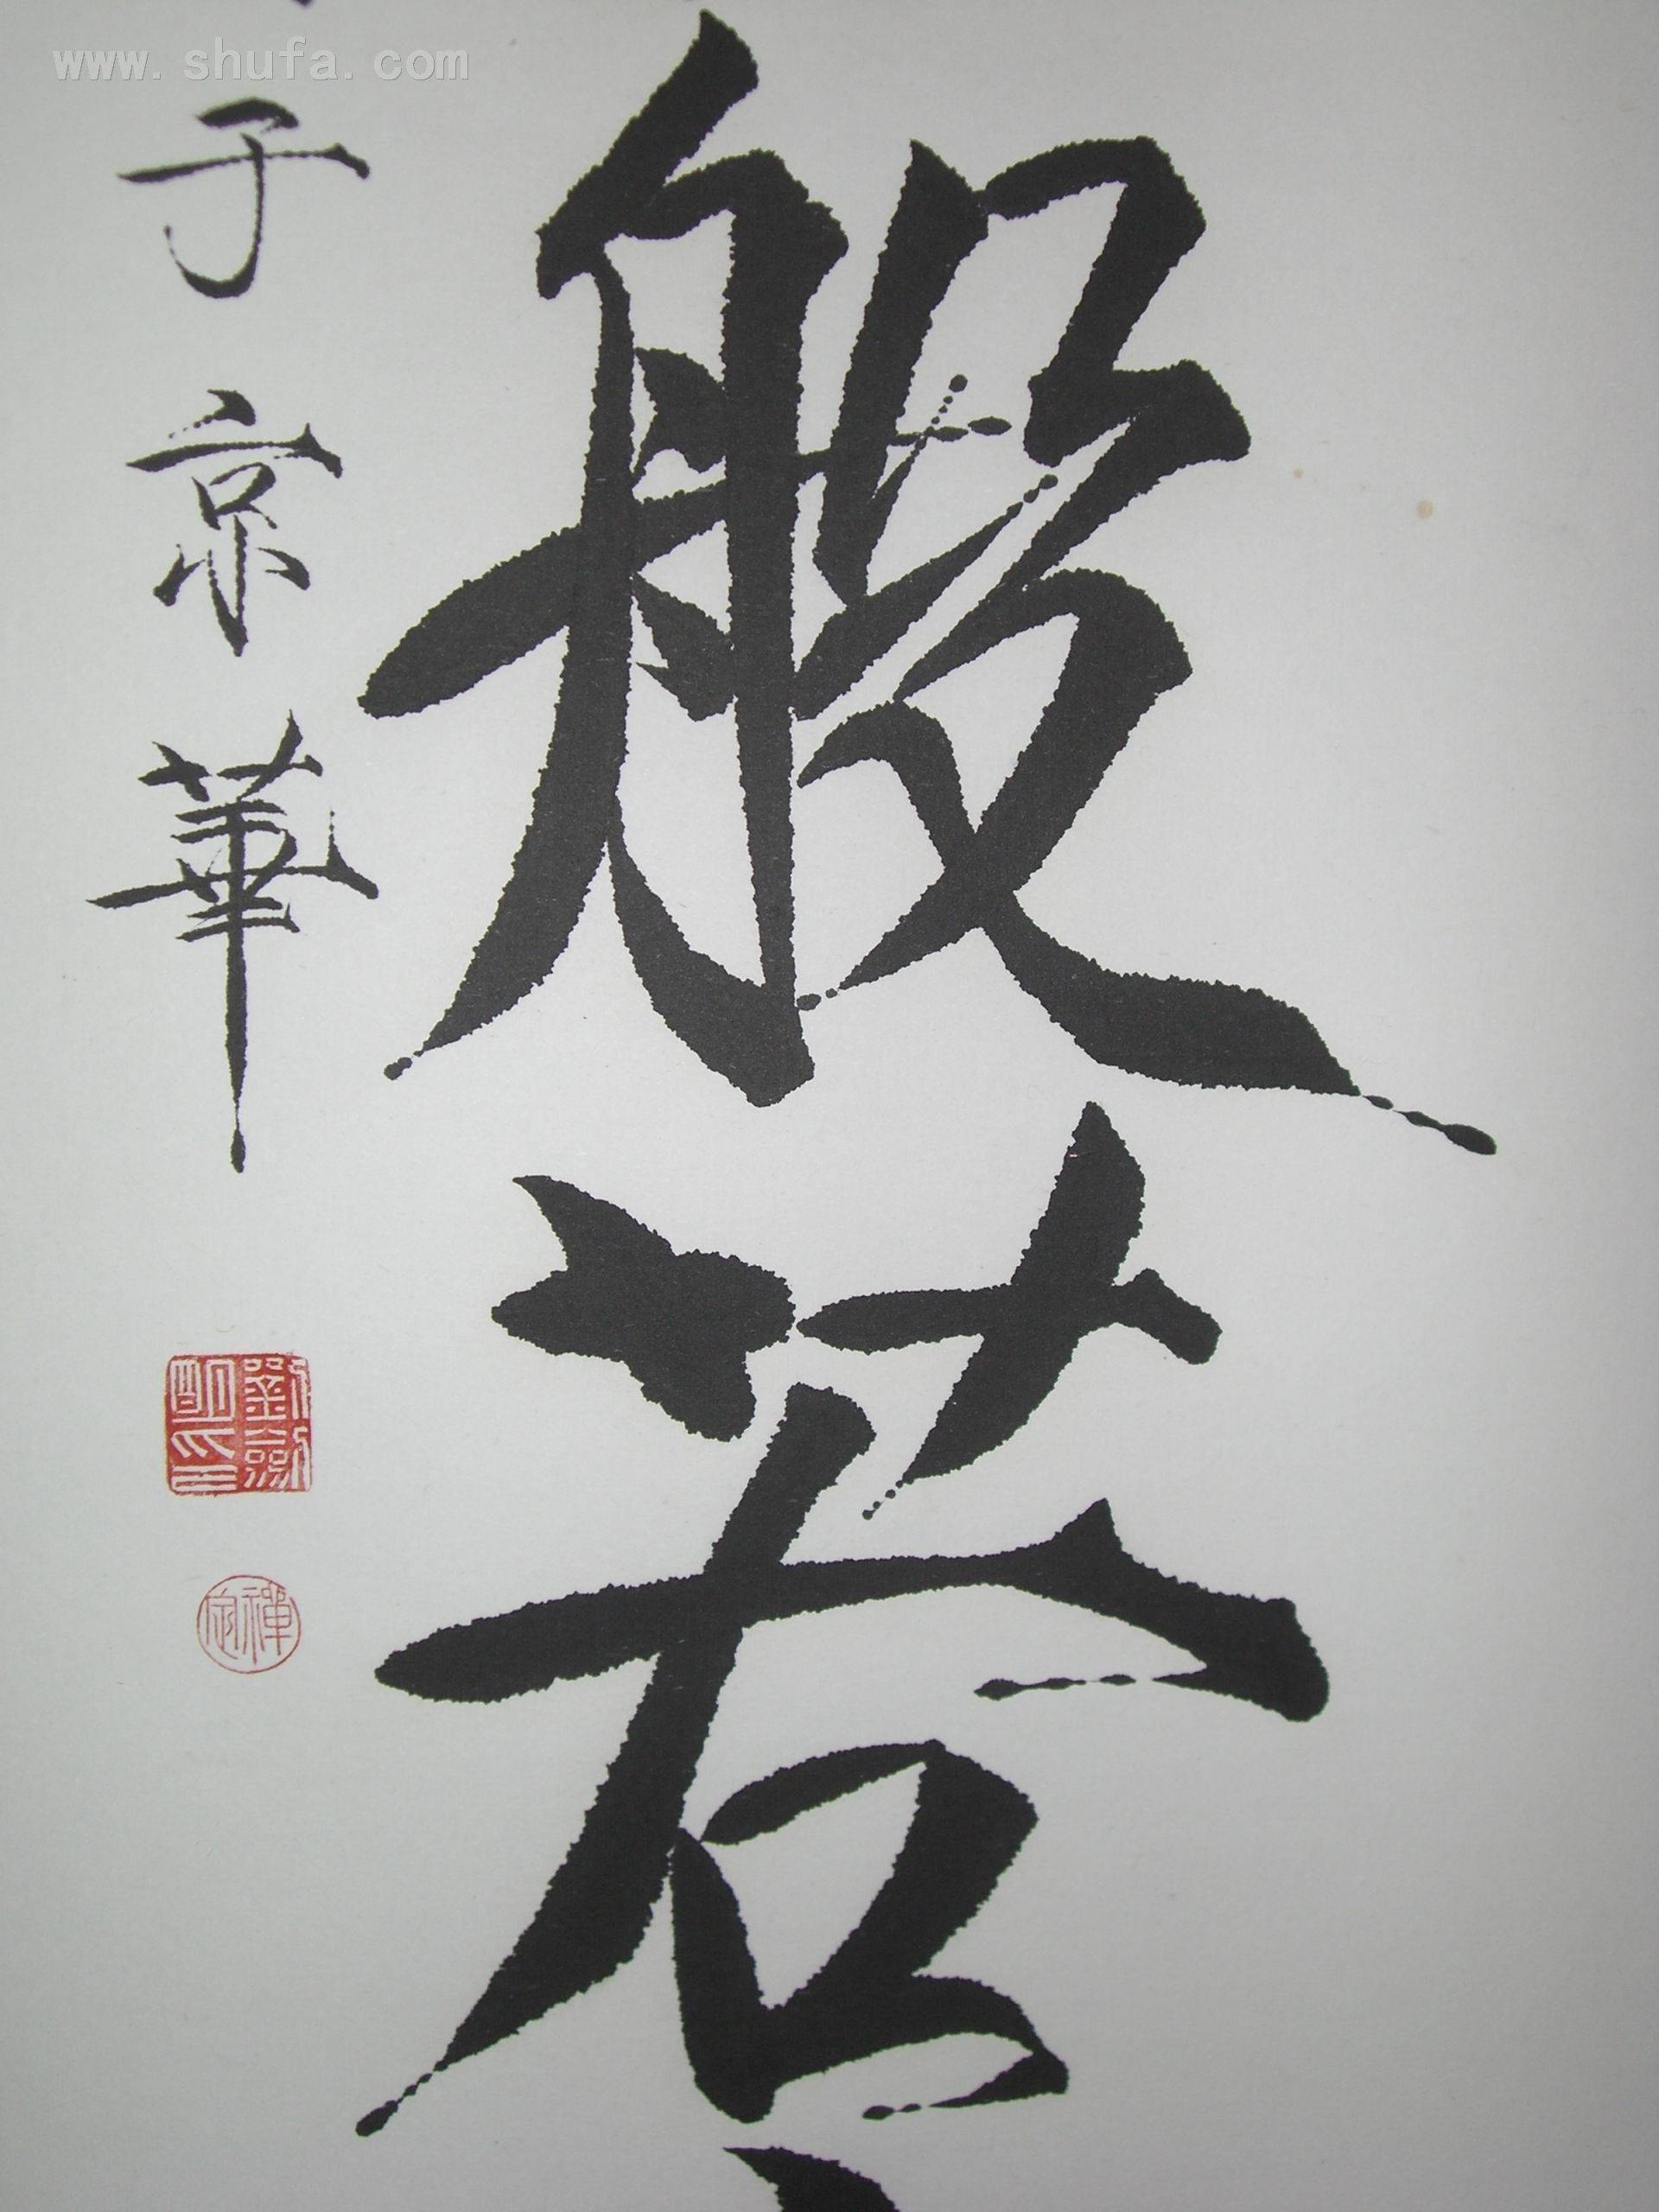 www.shufa.com
般若
子京華
禪定